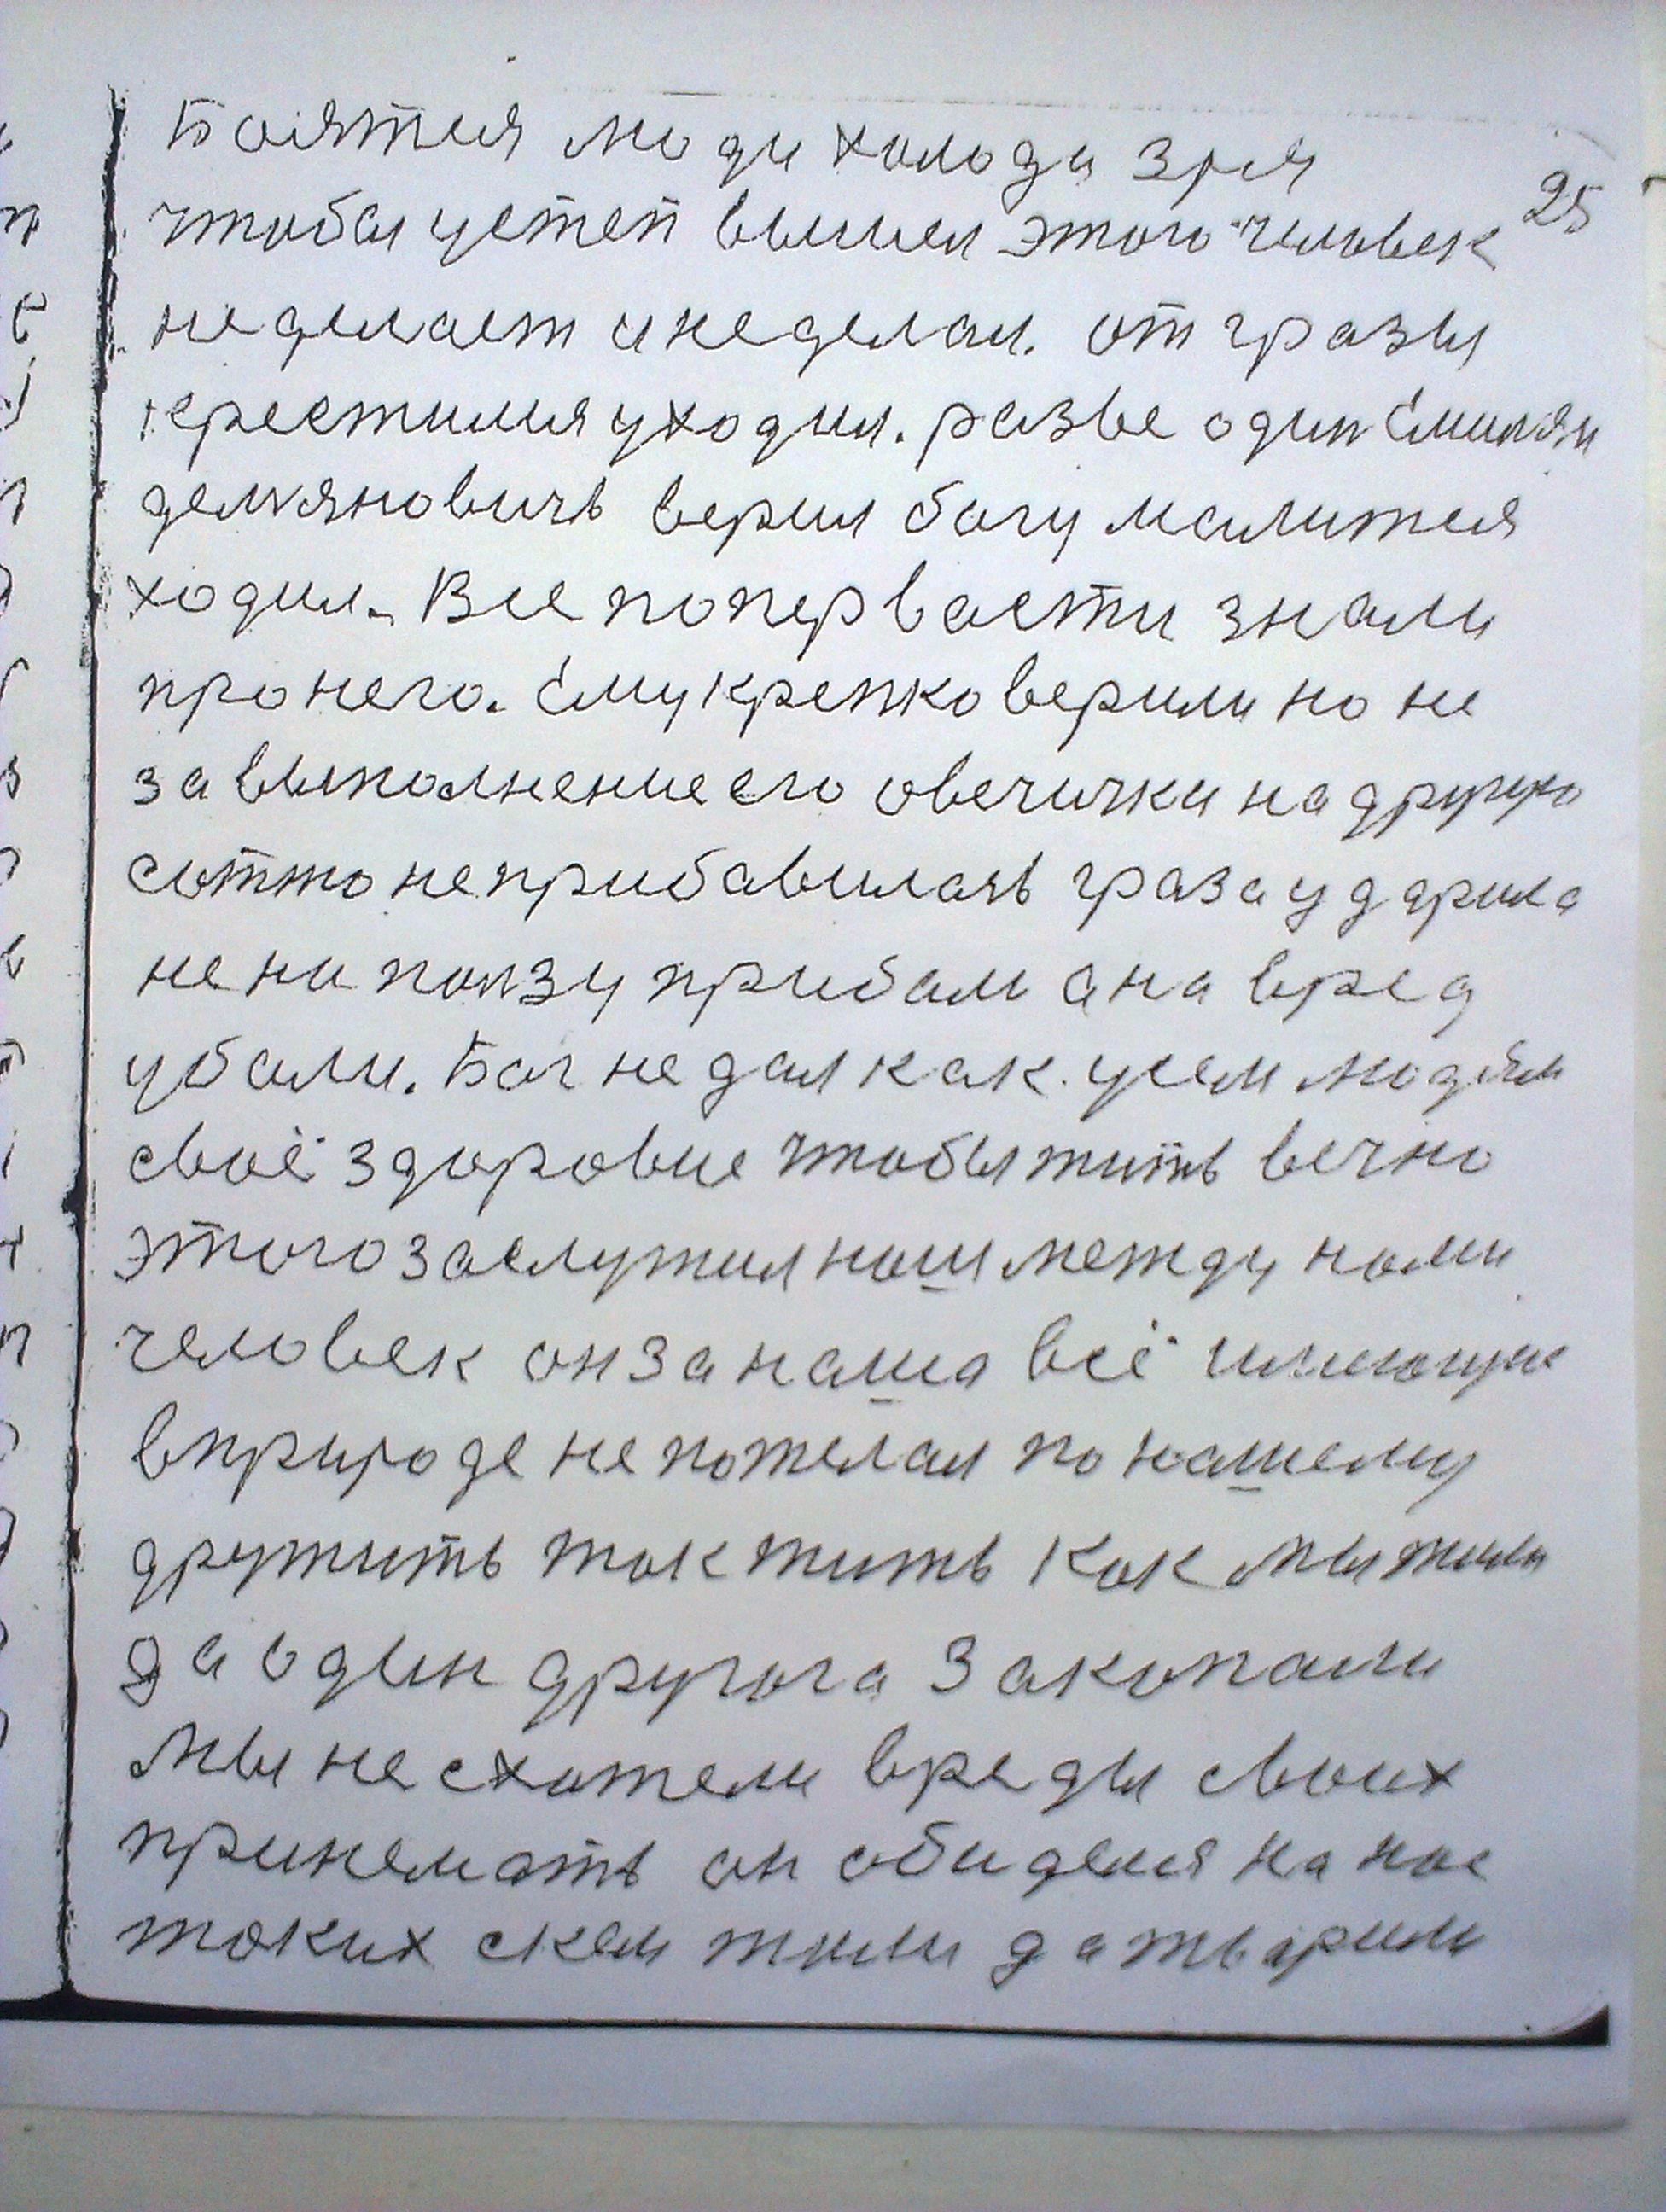 Боятся люди холода зря
25
чтобы устеп вышел этого человек
не делает и неделал. от гразы
крестился уходил. разве один Емильян
демяновичь верил богу малится
ходил. Все поперваети знали
про него. Ему крепко верили но не
за выполнение его овечички на другую
сотто не прибавилась граза ударила
не на ползу прибал а на вред
убали. Бог не дал как усем людям
своё здоровие чтобы жить вечно
этого заслужил наш между нами
человек он за наша всё
в природе не пожелал по нашему
дружить так жить как мы жили
да один другога закопали
Мы не схотели вреды своих
принемать он обиделся на нас
таких скем жили да тварили